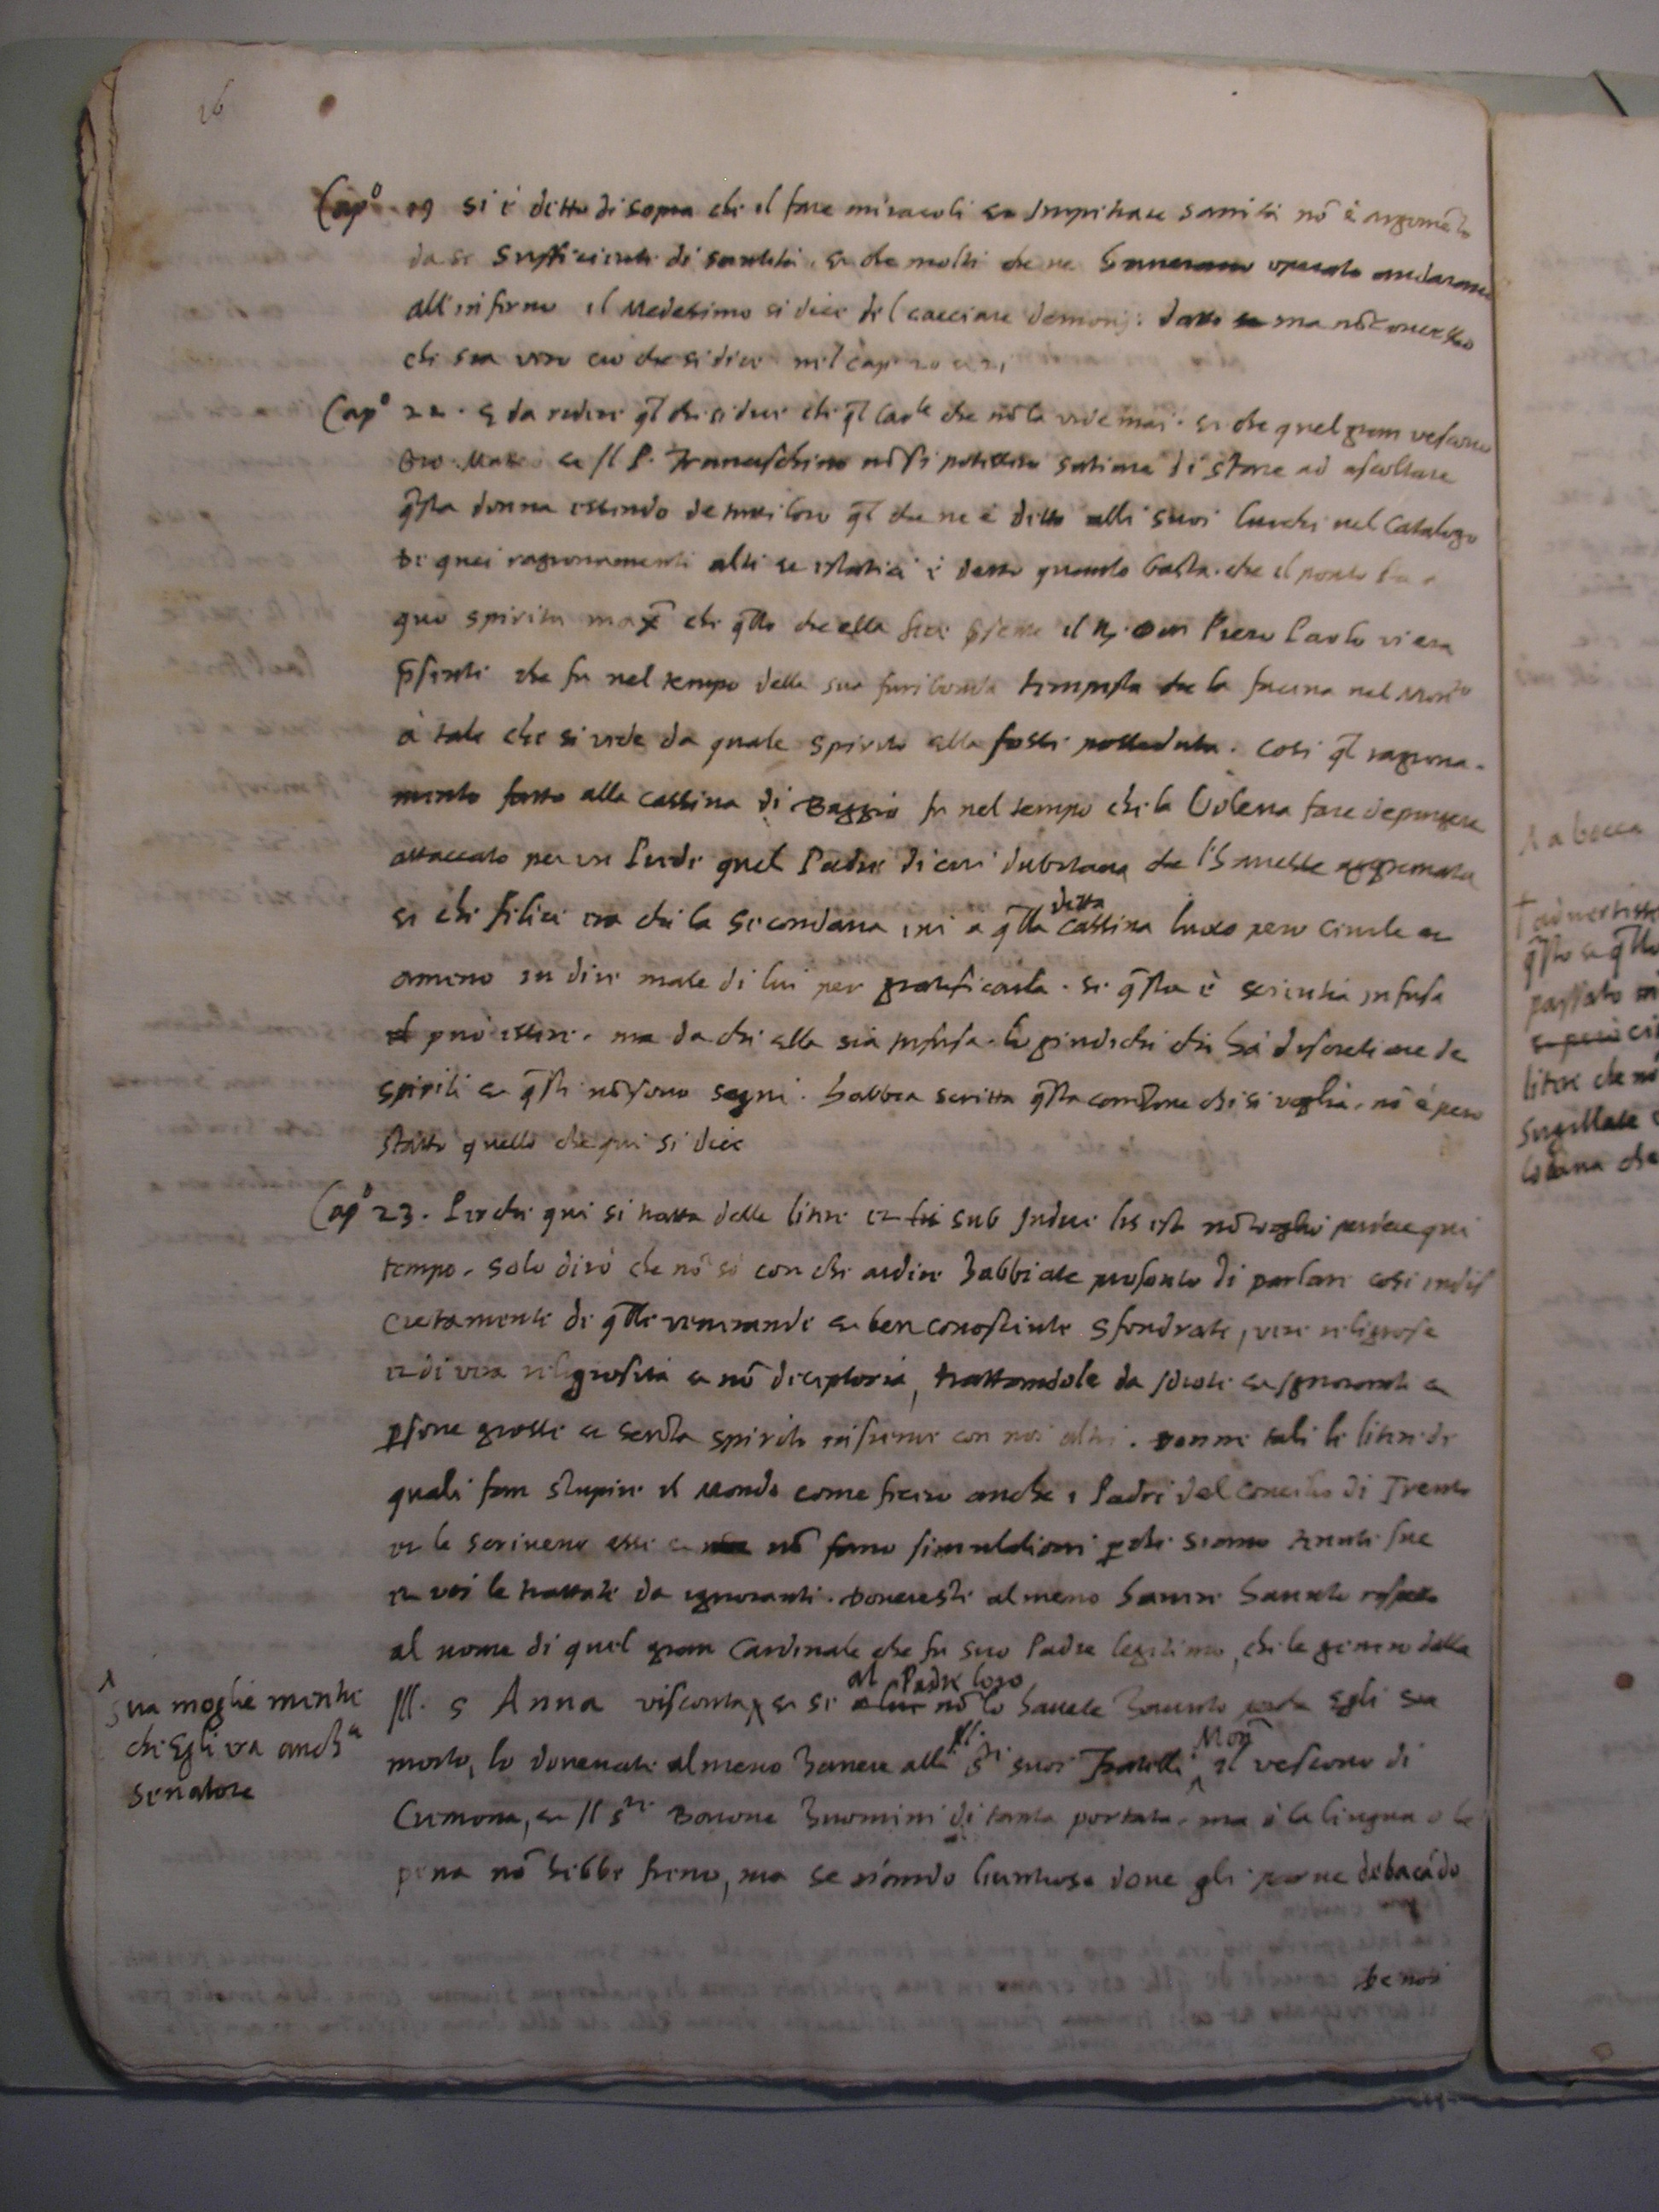 26
Cap° 19 si è ditto di sopra che il fare miracoli et Impitrare sanità nō è argumēto
da se sufficiente di santità, et che molti che ne haveano operato andarano
all'inferno il Medesimo si dice del cacciare demonij. ma nō concesso
che sia vero cio che si dice nel cap. 20 et 21
Cap° 22. È da redere q̄l che si dice che q̄l Car.le che nō la vide mai. et che quel gran vescovo
Gio. Matt.o et Il P. Franceschino nō si potettero satiare di stare ad ascoltare
q̄sta donna essendo de tutti loro q̄l che ne è ditto alli suoi luochi nel Catalogo
Di quei ragionamenti alti et estatici è detto quanto basta. che il ponto sta a
quo spiritu max̄ che q̄llo che ella fece il R. Don Piero Paolo vi era
p̄senti che fu nel tempo della sua furibonda tempesta che la faceva nel Mon.rio
à tale che si vide da quale spirito ella fosse posseduta. Cosi q̄l ragiona-
mento fatto alla cassina di Baggio fu nel tempo che la Voleva fare depingere
attaccato per un piede quel Padre di cui dubitava che l'havesse aggravata
et che felice era chi la secondava ivi a q̄lla ditta cassina luoco pero civile et
ameno in dire male di lui per gratificarla. se q̄sta è scientia infusa
può essere. ma da chi ella sia infusa. lo giudichi chi hà discretione de
spiriti et q̄sti nō sono segni. habbia scritta q̄sta chi si voglia. nō è pero
stato quello che qui si dice
Cap° 23. Perche qui si tratta delle litere et sub Judice lis est nō voglio perdere qui
tempo. solo dirò che nō sò con che ardire habbiate prosonto di parlare cosi indis
cretamente di q̄lle venerande et ben conosciute Sfondrate, vere religiose
et di vera religiosità et nō deceptoria, trattandole da idiote et ignoranti et
p̄sone grosse et senza spirito insieme con noi altri. Donne tali le litere di
quali fan stupire il Mondo come fecero anche i Padri del Concilio di Trento
et le scriveno esse et nō fano simulationi p̄che siano tenute sue
et voi le trattate da ignoranti. Doveresti almeno havere havuto rispetto
al nome di quel gran Cardinale che fu suo Padre legitimo, che le genero della
Ill. S Anna visconta et se al Padre loro nō lo havete havuto Egli sia
sua moglie mentre
che Egli era anch.a
Senatore
morto, lo dovevate almeno havere alli Ill. S.ri suoi Fratelli Mōn il vescovo di
Cremona, et Il S.r Barone huomini di tanta portata. ma o la lingua o la
pena nō hebbe freno, ma se n'ando licentiosa dove gli parve debacādo
de noi
la bocca
† advertisse
q̄sto et q̄llo
passato
litere che nō
sugillate